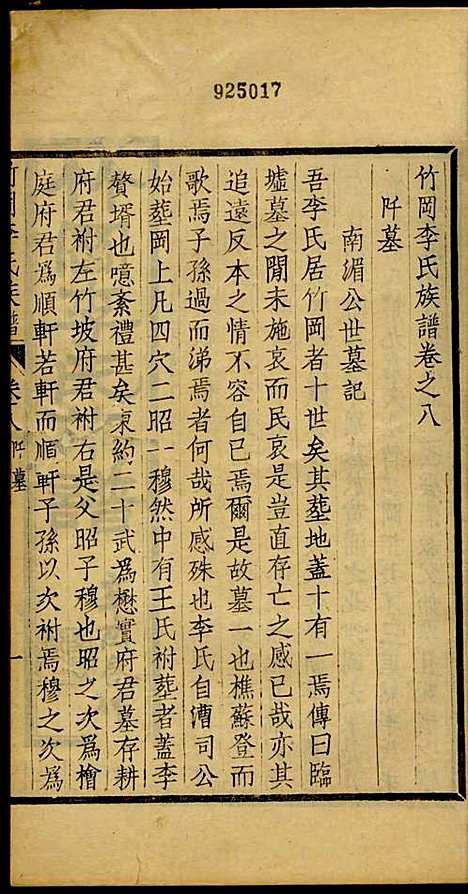 925017
竹岡李氏族譜卷之八
阡墓
南湄公世墓記
吾李氏居竹岡者十世矣其葬地蓋十有一焉傳曰臨
墟墓之閒未施哀而民哀是豈直存亡之感已哉亦其
追遠反本之情不容自已焉爾是故墓一也樵蘇登而
歌焉子孫過而涕焉者何哉所感殊也李氏自漕司公
始葬岡上凡四穴二昭一穆然中有王氏祔葬者蓋李
贅壻也噫紊禮甚矣東約二十武爲懋實府君墓存耕
府君祔左竹坡府君祔右是父昭子穆也昭之次爲檜
庭府君爲順軒若軒而順軒子孫以次祔焉穆之次爲
竹岡李氏族譜
卷八阡墓
一